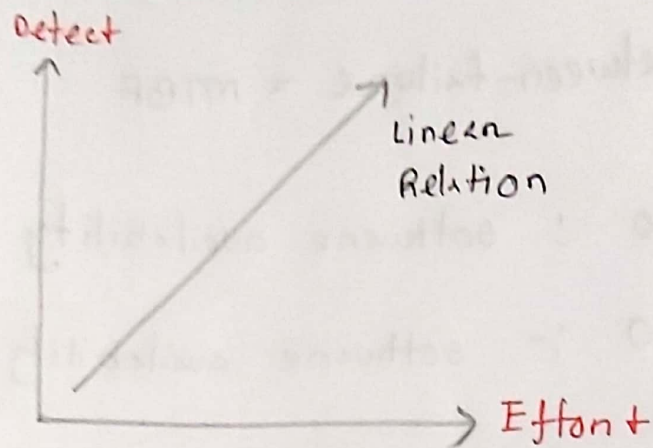 Detect
Linear
Relation
Effort